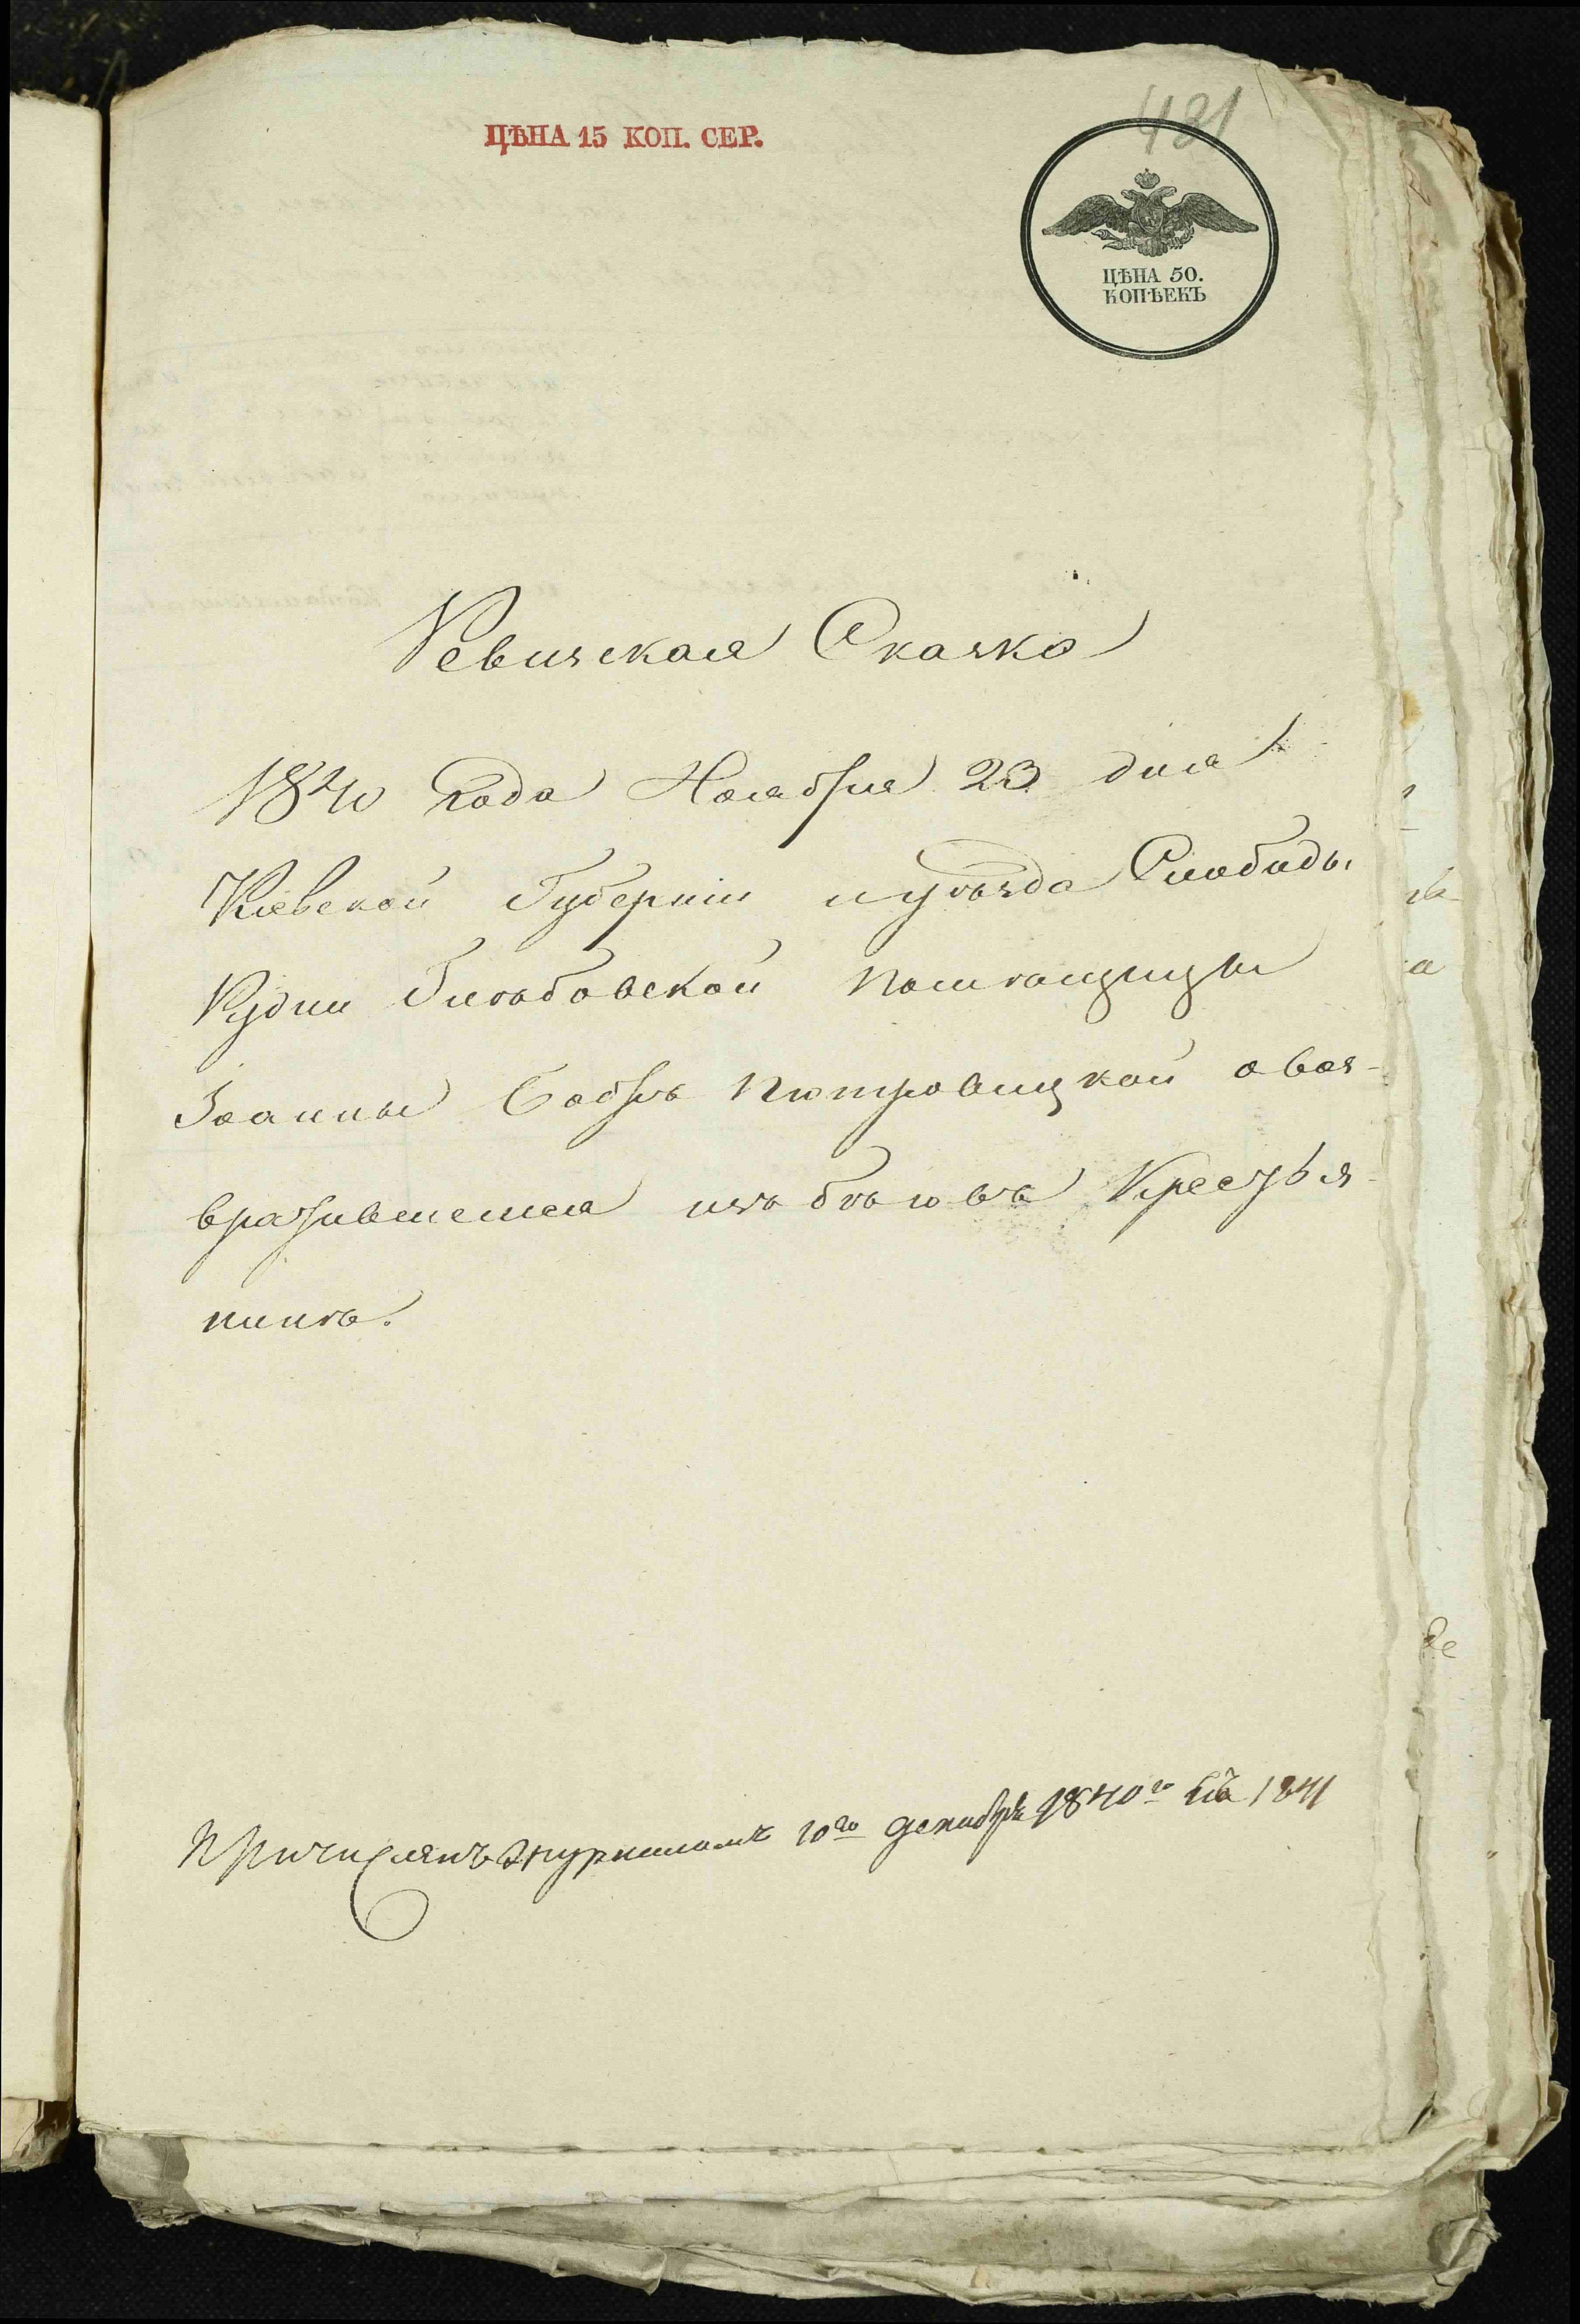 481
ЦѢНА 15 КОП. СЕР.
ЦѢНА 50.
КОПѢЕКЪ
Ревизская Сказка
1840 Года Ноября 23 дня
Кіевской Губерніи и уѣзда Слободы
Рудни Глѣбовской Помѣщицы
Іоанны Бобръ Піотровицкой о воз-
вратившемся изъ бѣговъ Крестья-
нинѣ.
Причисленъ Журналомъ 10го декабря 1840го 1841